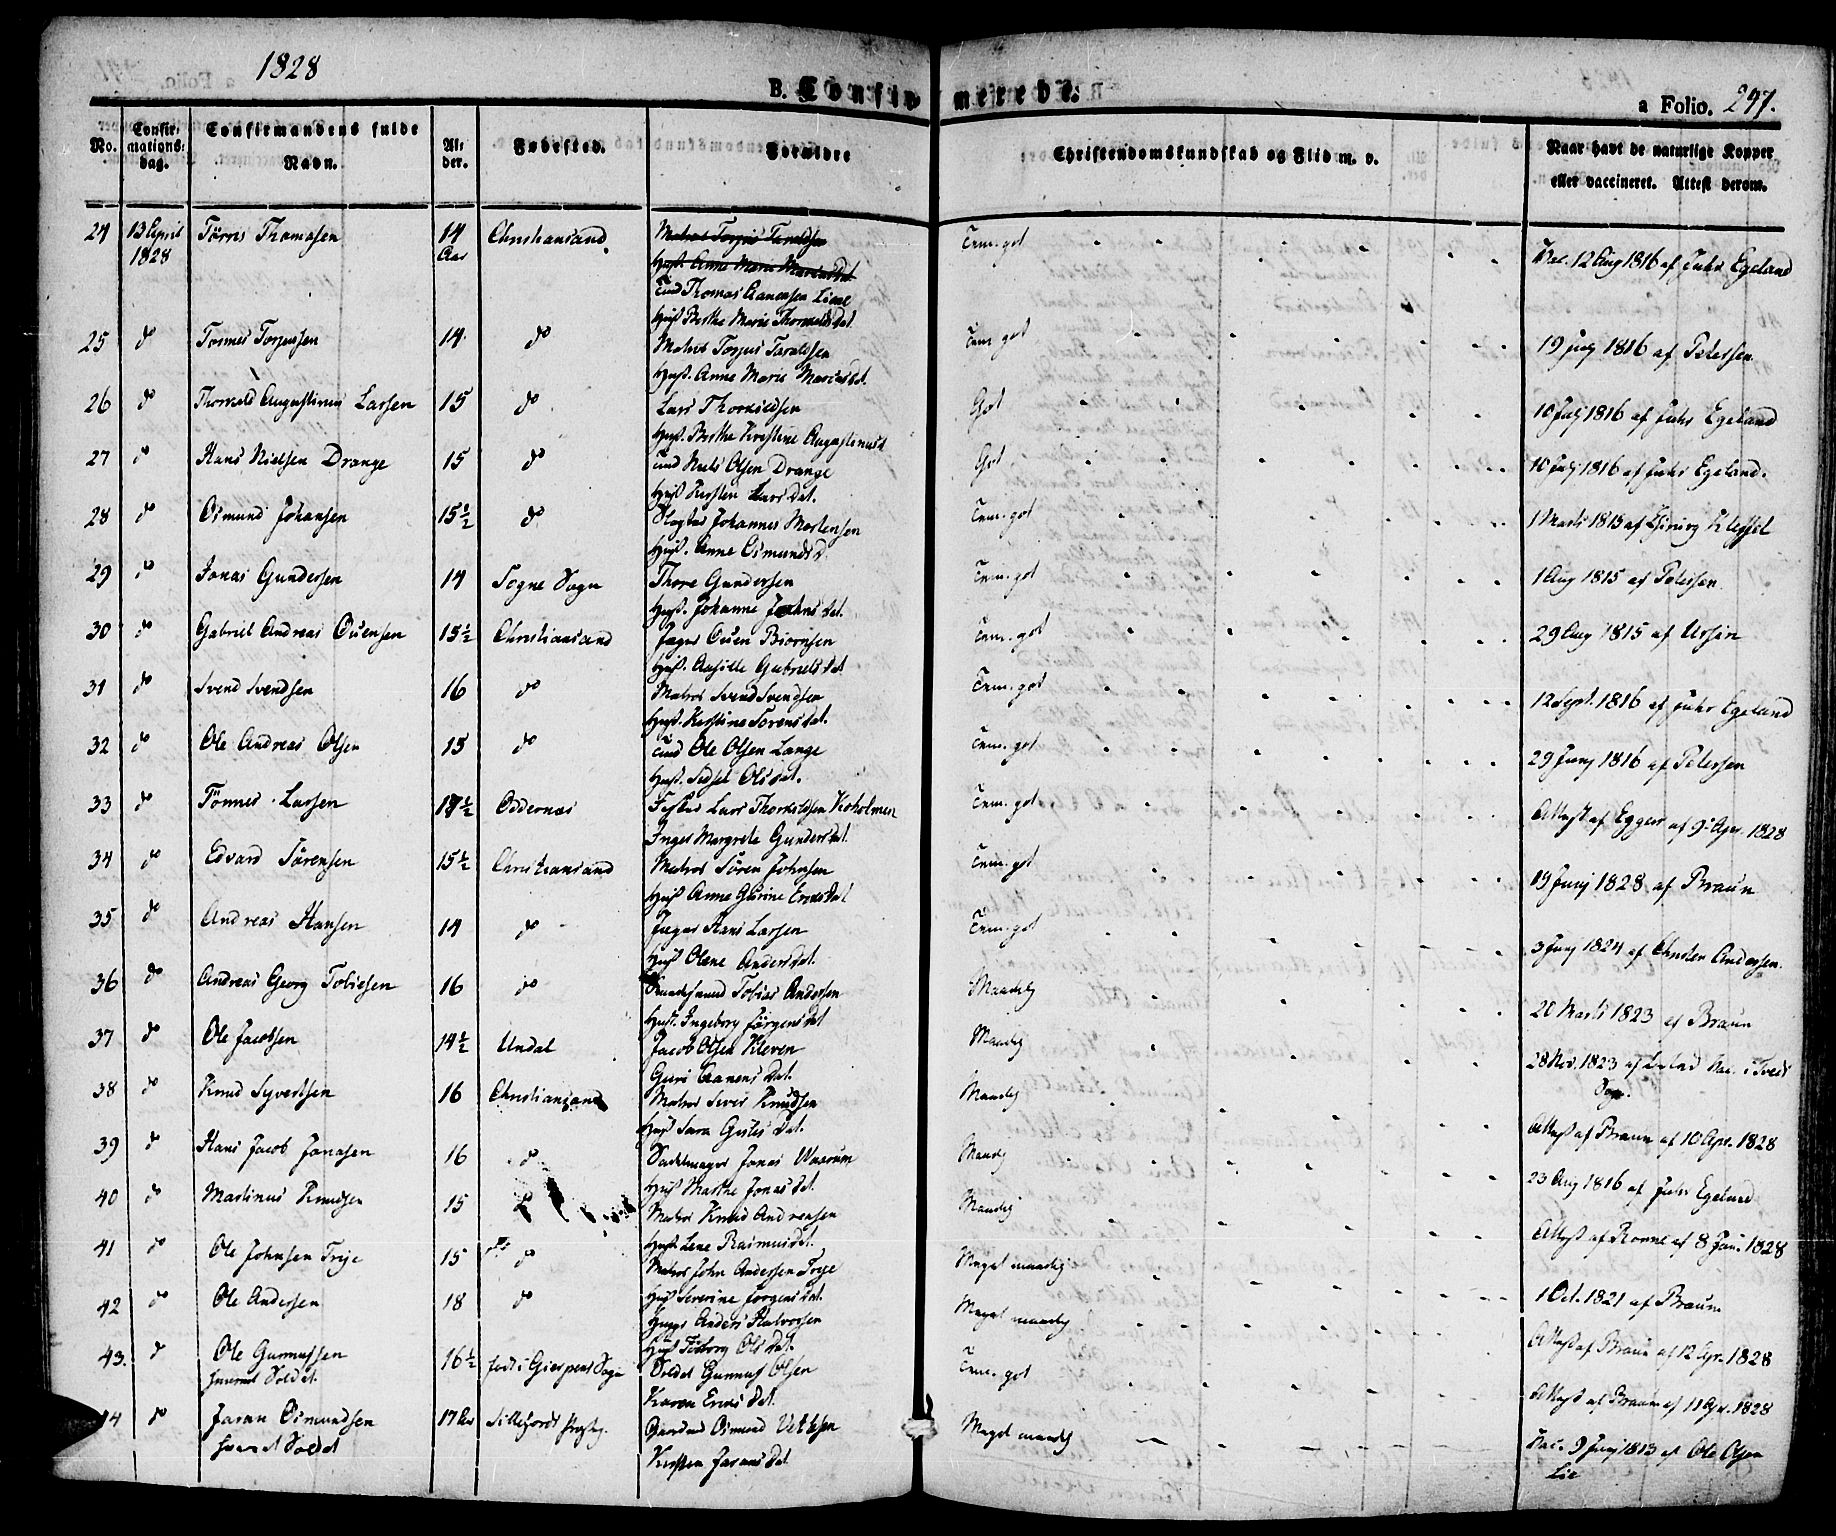 1828
B. Confirmerede.
a Folio. 247.
No.
Confirmations-dag.
Confirmandens fulde Navn.
Alder.
Fødested.
Forældre
Christendomskundskab og Flid m. v.
Naar havt de naturlige Kopper eller vaccineret. Attest derom.
24 13 April 1828 Törres Thomasen 14 Aar Christiansand Matros Torjus Taraldsen
Hust. Anne Marie Mariusdat
Thomas Aanensen Liane
Hust Berthe Marie Thorvaldsdat. Tem. got Vac. 12 Aug 1816 af Juhr Egeland
25 do Tönnes Torjussen 14 do Matros Torjus Taraldsen
Hust. Anne Marie Mariusdt. Tem. got 19 Juny 1816 af Petersen
26 do Thorvald Augustinus Larsen 15 do Lars Thorkildsen
Hust. Berthe Kirstine Augustinusd Got 10 July 1816 af Juhr Egeland
27 do Hans Nielsen Drange 15 do Niels Olsen Drange
Hust Kirsten Larsdat. Got 10 July 1816 af Juhr Egeland.
28 do Osmund Johansen 15½ do Slagter Johannes Mortensen
Hust. Anne Osmundsd. Tem. got 1 Marts 1815 af Chirurg
29 do Jonas Gundersen 14 Sogne Sogn Thore Gundersen
Hust. Johanne Johnsdat. Tem. got 1 Aug 1815 af Petersen
30 do Gabriel Andreas Ousensen 15½ Christiansand Jæger Ousen Biornsen
Hust. Gabrielsdat Tem. got 29 Aug 1815 af Ursin
31 do Svend Svendsen 16 do Matros Svend Svendsen
Hust. Kirstine Sorensdat. Tem. got 12 Sept. 1816 af Juhr Egeland
32 do Ole Andreas Olsen 15 do Ole Olsen Lange
Hust. Sidsel Olsdat. Tem. got 29 Juny 1816 af Petersen
33 do Tönnes Larsen 17½ Oddernes Lars Thorkildsen Koholmen
Inger Margrete Gundersdat. Tem. got Attest af Eggers af 9 Apr. 1828
34 do Edvard Sörensen 15½ Christiansand Matros Sören Johnsen
Hust Anne Gurine Ericsdat Tem. got 19 Juny 1828 af Braun
35 do Andreas Hansen 14 do Jæger Hans Larsen
Hust Olene Andersdat. Tem. got 3 Juny 1824 af Christen Andersen.
36 do Andreas Georg Tobiesen 16 do Tobias Andersen
Hust. Ingeborg Jörgensdat Maadelig 20 Marts 1823 af Braun
37 do Ole Jacobsen 14½ Undal Jacob Olsen Kleven
Guri Aanensdat. Maadelig 28 Nov. 1823 af
Sogn.
38 do Knud Syvertsen 16 Christiansand Matros Siver Knudsen
Hust Sara Dat. Maadelig Attest af Braun af 10 Apr. 1828
39 do Hans Jacob Jonasen 16 do Sadelmager Jonas
Hust Marthe Jonasdat Maadelig 23 Aug 1816 af Juhr Egeland
40 do Martinus Knudsen 15 do Matros Knud Andreasen
Hust Lene Rasmusdat. Maadelig Attest af af 8 Jan. 1828
41 do Ole Johnsen Troje 15 do Matros John Andersen Troje
Hust Severine Jorgensdat. Meget maadelig 1 Oct. 1821 af Braun
42 do Ole Andersen 18 do Anders Halvorsen
Hust Olsdat. Meget maadelig Attest af Braun af 12 Apr. 1828
43. do Ole Gunnufsen
Soldat 16½ fodt i Sogn Soldat Gunnuf Olsen
Karen Ericsdat. Tem. got Attest af Braun af 11 Apr. 1828
44 do Jaran Osmundsen
Soldat 17 Aar Osmund
Kirsten Jaransdat Meget maadelig Vac. 9 Juny 1813 af Ole Olsen
Lie